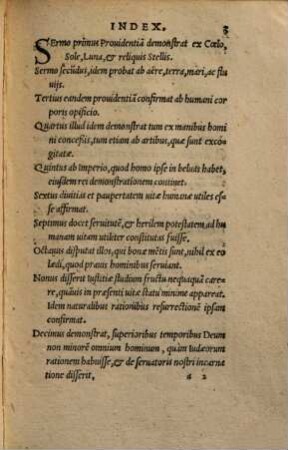 INDEX.
SErmo primus Prouidentiã demonstrat ex Cœlo
Sole, Luna, & reliquis Stellis.
Sermo secũdus, idem probat ab aëre, terra, mari, ac flu
uijs.
Tertius eandem prouidentiã confirmat ab humani cor
poris opificio.
Quartus illud idem demonstrat tum ex manibus homi
ni concessis, tum etiam ab artibus, quæ sunt excõ-
gitatæ.
Quintus ab imperio, quod homo ipse in beluas habet,
eiusdem rei demonstrationem continet.
Sextus diuitias et paupertatem uitæ humanæ utiles es-
se affirmat.
Septimus docet seruitutẽ, & herilem potestatem, ad hu
manam uitam utiliter constitutas fuisse.
Octauus disputat illos, qui bonæ mẽtis sunt, nihil ex eo
lædi, quod prauis hominibus seruiant.
Nonus disserit iustitiæ studium fructu nequaquã care-
re, quãuis in præsenti uitæ statu minime appareat.
Idem naturalibus rationibus resurrectionẽ ipsam
confirmat.
Decimus demonstrat, superioribus temporibus Deum
non minorẽ omnium hominum, quàm Iudæorum
rationem habuisse, & de seruatoris nostri incarna
tione disserit.
a 2